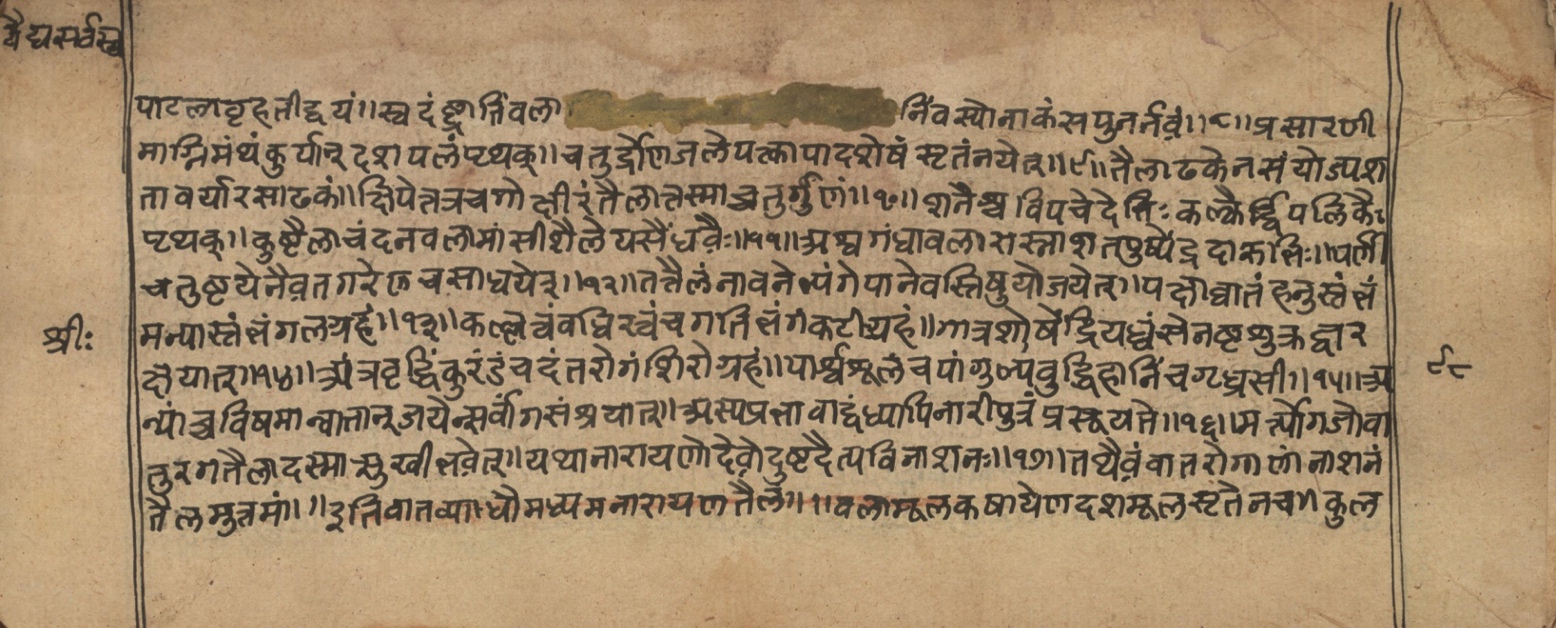 वैद्यसर्वस्व
पाटलावृहतीद्वयं॥स्वदंष्ट्रातिंवला निंवस्योनाकंसपुनर्नवं॥८॥प्रसारणी
माग्निमंथंकुर्यात्दशपलंप्टथक्॥चतुर्द्रोणेजलेपत्कापादशेषंस्टतंनयेत्॥९॥तैलाढकेनसंयोज्पश
तावर्यारसाढकं॥क्षिपेतत्रचगोक्षीरंतैलातस्माच्चतुर्गुणं॥१०॥शतैश्चविपचेदेभिःकल्कैर्द्विपलिकैः
प्टथक्॥कुष्टैलाचंदनवलामांसीशैलेयसैंधवैः॥११॥अश्वगंधावलारास्नाशतपुष्पेंद्रदारुभिः॥पर्णी
चतुष्टयेनैवतगरेणचसाधयेत्॥१२॥तत्तैलंनावनेभ्यंगेपानेवस्तिषुयोजयेत्॥पक्षाघातंहनुस्तंभं
श्रीः मन्यास्तंभंगलग्रहं॥१३॥कल्लत्वंवधिरत्वंचगतिभंगंकटीग्रहं॥गात्रशोषेंद्रियध्वंसेनष्टशुक्रज्वर
क्षयात्॥१४॥अंत्रवृद्धिंकुरंडंचदंतरोगंशिरोग्रहं॥पार्श्वशूलंचपांगुल्पवुद्धिहानिंचगृध्रसी॥१५॥अ ९८
न्यांच्चविषमान्वातान्जयेन्सर्वांगसंश्रयात्॥अस्यप्रभावाद्वंध्यापिनारीपुत्रंप्रसूयते॥१६॥मर्त्योगजोवा
तुरगतैलादस्मात्सुखीभवेत्॥यथानारायणोदेवोदुष्टदैत्यविनाशनः॥१७॥तथैवंवातरोगाणांनाशनं
तैलमुत्तमं॥॥इतिवातव्याधौमध्यमनारायणतैलं॥॥वलामूलकषायेणदशमूलस्टतेनच॥कुल